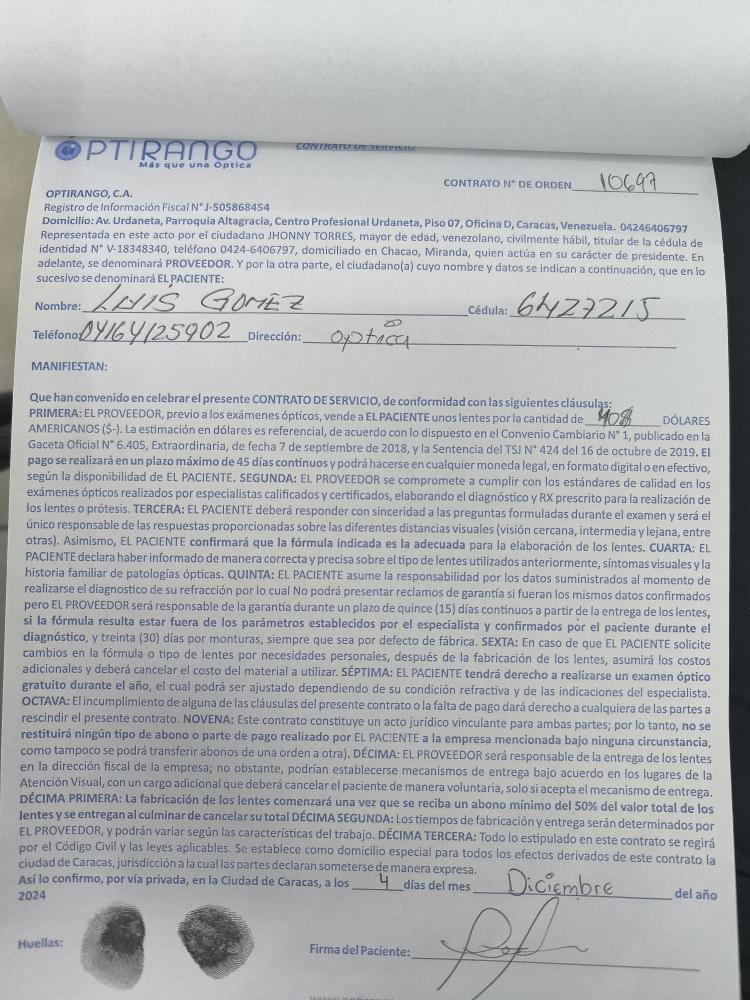 OPTIRANGO
Más que una Óptica
CONTRATO DE SERVICIO
CONTRATO N° DE ORDEN 10697
OPTIRANGO, C.A.
Registro de Información Fiscal N° J-505868454
Domicilio: Av. Urdaneta, Parroquia Altagracia, Centro Profesional Urdaneta, Piso 07, Oficina D, Caracas, Venezuela. 04246406797
Representada en este acto por el ciudadano JHONNY TORRES, mayor de edad, venezolano, civilmente hábil, titular de la cédula de
identidad N° V-18348340, teléfono 0424-6406797, domiciliado en Chacao, Miranda, quien actúa en su carácter de presidente. En
adelante, se denominará PROVEEDOR. Y por la otra parte, el ciudadano(a) cuyo nombre y datos se indican a continuación, que en lo
sucesivo se denominará EL PACIENTE:
Nombre: LUIS GOMEZ Cédula: 6427215
Teléfono: 04164125902 Dirección: optica
MANIFIESTAN:
Que han convenido en celebrar el presente CONTRATO DE SERVICIO, de conformidad con las siguientes cláusulas:
PRIMERA: EL PROVEEDOR, previo a los exámenes ópticos, vende a EL PACIENTE unos lentes por la cantidad de 40$ DÓLARES
AMERICANOS ($-). La estimación en dólares es referencial, de acuerdo con lo dispuesto en el Convenio Cambiario N° 1, publicado en la
Gaceta Oficial N° 6.405, Extraordinaria, de fecha 7 de septiembre de 2018, y la Sentencia del TSJ N° 424 del 16 de octubre de 2019. El
pago se realizará en un plazo máximo de 45 días continuos y podrá hacerse en cualquier moneda legal, en formato digital o en efectivo,
según la disponibilidad de EL PACIENTE. SEGUNDA: EL PROVEEDOR se compromete a cumplir con los estándares de calidad en los
exámenes ópticos realizados por especialistas calificados y certificados, elaborando el diagnóstico y RX prescrito para la realización de
los lentes o prótesis. TERCERA: EL PACIENTE deberá responder con sinceridad a las preguntas formuladas durante el examen y será el
único responsable de las respuestas proporcionadas sobre las diferentes distancias visuales (visión cercana, intermedia y lejana, entre
otras). Asimismo, EL PACIENTE confirmará que la fórmula indicada es la adecuada para la elaboración de los lentes. CUARTA: EL
PACIENTE declara haber informado de manera correcta y precisa sobre el tipo de lentes utilizados anteriormente, síntomas visuales y la
historia familiar de patologías ópticas. QUINTA: EL PACIENTE asume la responsabilidad por los datos suministrados al momento de
realizarse el diagnostico de su refracción por lo cual No podrá presentar reclamos de garantía si fueran los mismos datos confirmados
pero EL PROVEEDOR será responsable de la garantía durante un plazo de quince (15) días continuos a partir de la entrega de los lentes,
si la fórmula resulta estar fuera de los parámetros establecidos por el especialista y confirmados por el paciente durante el
diagnóstico, y treinta (30) días por monturas, siempre que sea por defecto de fábrica. SEXTA: En caso de que EL PACIENTE solicite
cambios en la fórmula o tipo de lentes por necesidades personales, después de la fabricación de los lentes, asumirá los costos
adicionales y deberá cancelar el costo del material a utilizar. SÉPTIMA: EL PACIENTE tendrá derecho a realizarse un examen óptico
gratuito durante el año, el cual podrá ser ajustado dependiendo de su condición refractiva y de las indicaciones del especialista.
OCTAVA: El incumplimiento de alguna de las cláusulas del presente contrato o la falta de pago dará derecho a cualquiera de las partes a
rescindir el presente contrato. NOVENA: Este contrato constituye un acto jurídico vinculante para ambas partes; por lo tanto, no se
restituirá ningún tipo de abono o parte de pago realizado por EL PACIENTE a la empresa mencionada bajo ninguna circunstancia,
como tampoco se podrá transferir abonos de una orden a otra). DÉCIMA: EL PROVEEDOR será responsable de la entrega de los lentes
en la dirección fiscal de la empresa; no obstante, podrían establecerse mecanismos de entrega bajo acuerdo en los lugares de la
Atención Visual, con un cargo adicional que deberá cancelar el paciente de manera voluntaria, solo si acepta el mecanismo de entrega.
DÉCIMA PRIMERA: La fabricación de los lentes comenzará una vez que se reciba un abono mínimo del 50% del valor total de los
lentes y se entregan al culminar de cancelar su total DÉCIMA SEGUNDA: Los tiempos de fabricación y entrega serán determinados por
EL PROVEEDOR, y podrán variar según las características del trabajo. DÉCIMA TERCERA: Todo lo estipulado en este contrato se regirá
por el Código Civil y las leyes aplicables. Se establece como domicilio especial para todos los efectos derivados de este contrato la
ciudad de Caracas, jurisdicción a la cual las partes declaran someterse de manera expresa.
Así lo confirmo, por vía privada, en la Ciudad de Caracas, a los 4 días del mes Diciembre del año
2024
Huellas: Firma del Paciente: